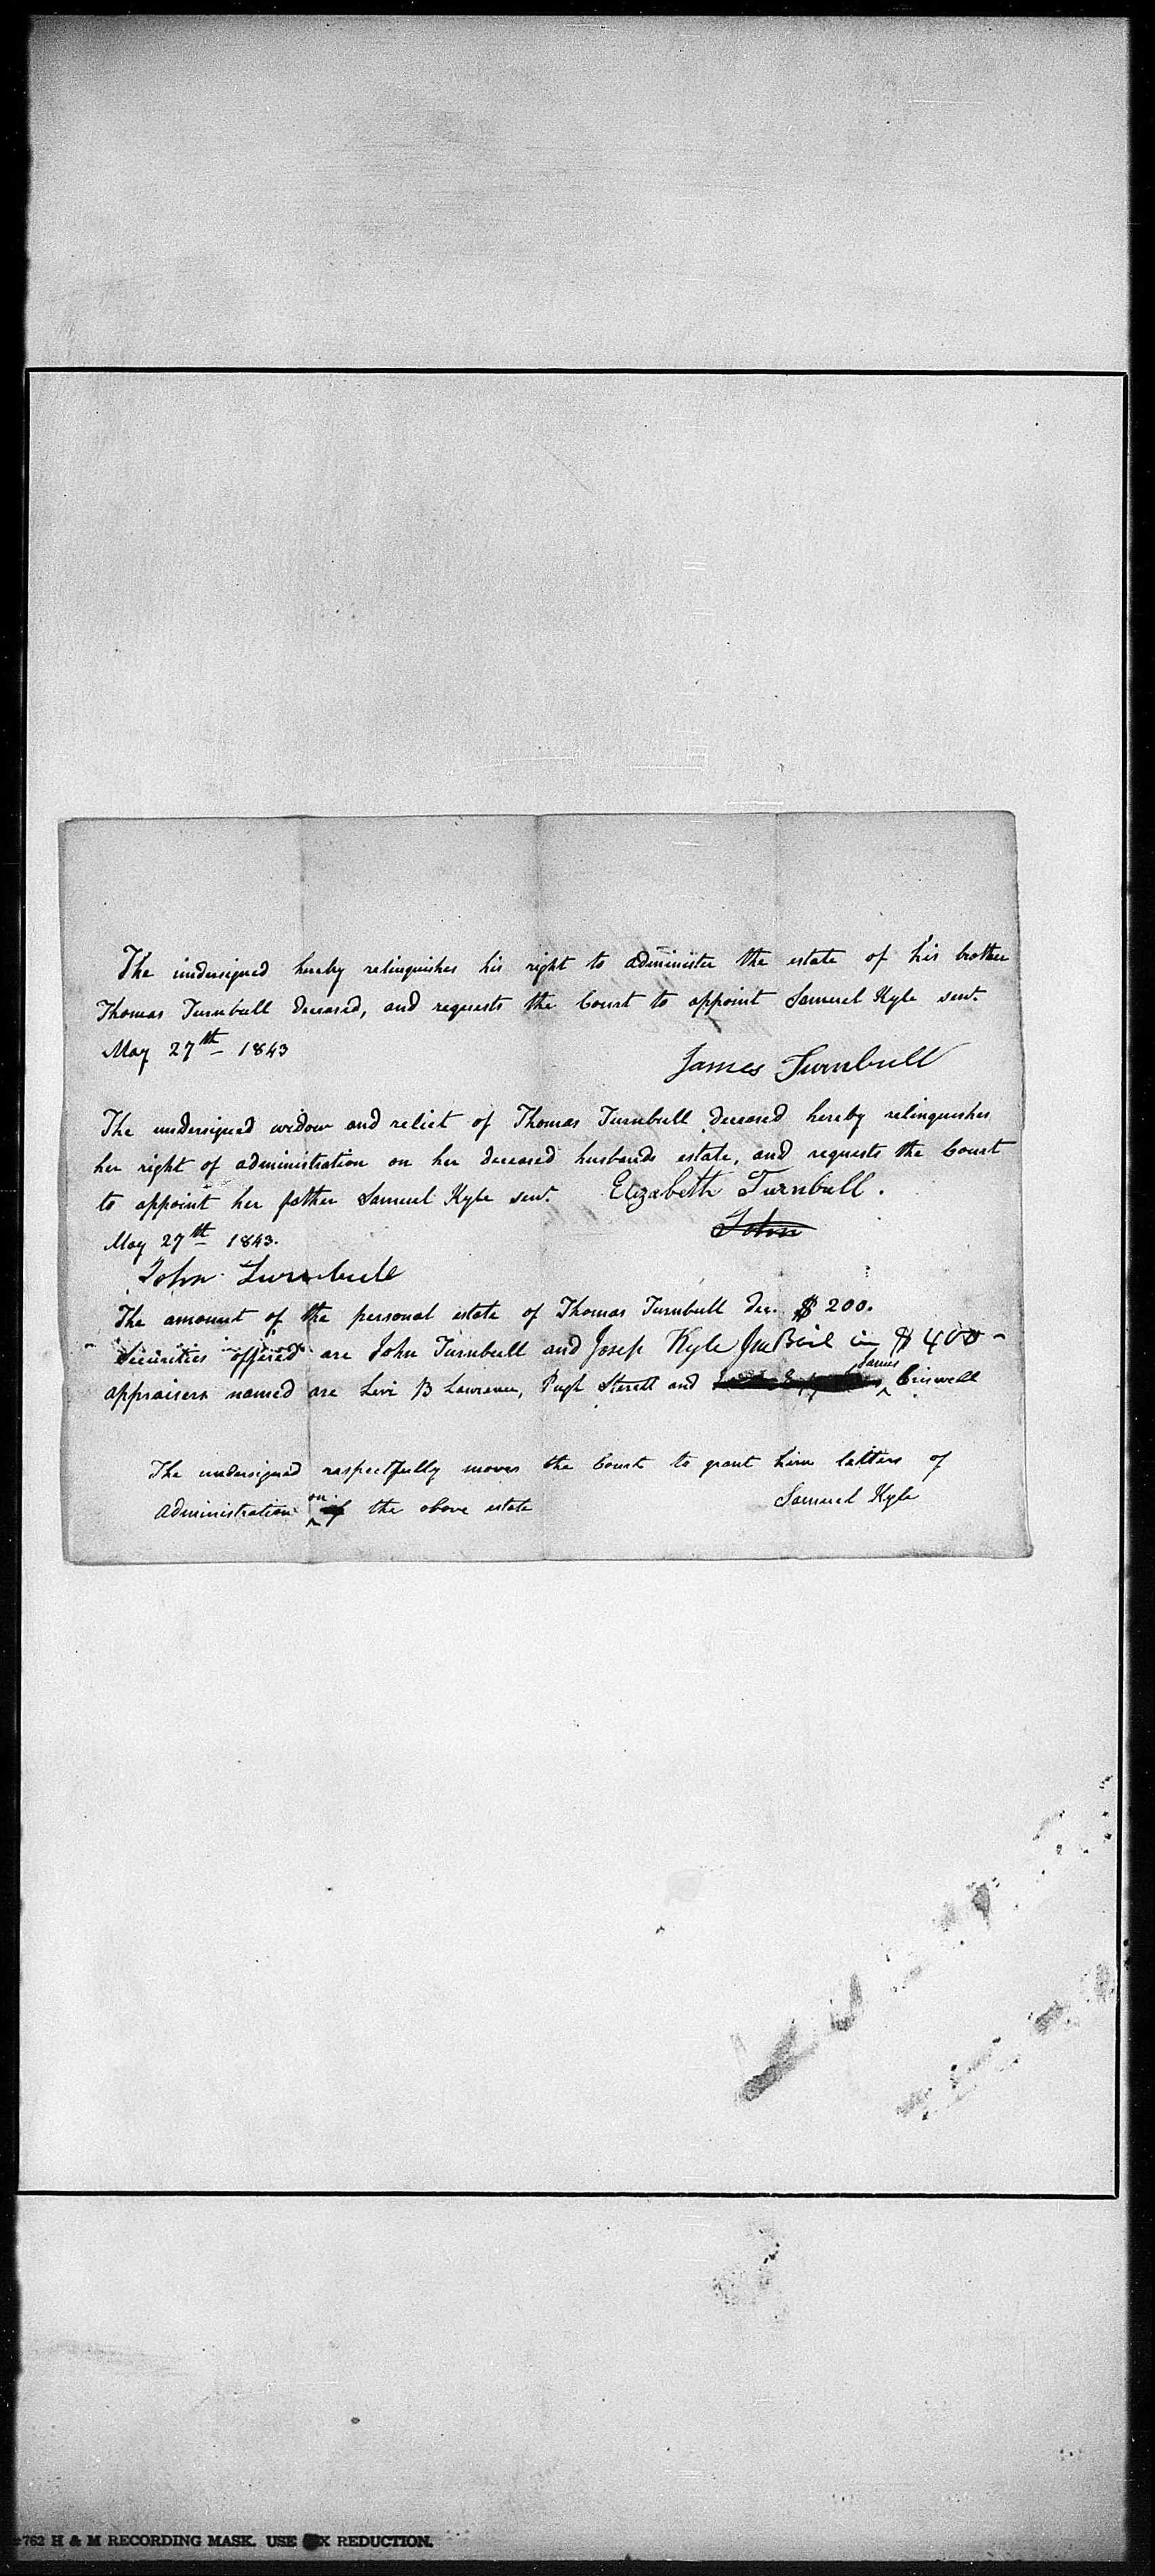 The undersigned hereby relinquishes his right to administer the estate of his brother
Thomas Turnbull deceased, and requests the Court to appoint Samuel Kyle senr.
May 27th 1843
James Turnbull
The undersigned widow and relict of Thomas Turnbull deceased hereby relinquishes
her right of administration on her deceased husbands estate, and requests the Court
to appoint her father Samuel Kyle senr. Elizabeth Turnbull.
John
May 27th 1843.
John Turnbull
The amount of the personal estate of Thomas Turnbull dec. $ 200.
Securities offered are John Turnbull and Josep Kyle Jn Bail in $ 400
appraisers named are Levi B Lawrence, Pugh Sterett and James Criswell
The undersigned respectfully moves the Court to grant him letters of
administration on of the above estate
Samuel Kyle
762 H & M RECORDING MASK. USE X REDUCTION.